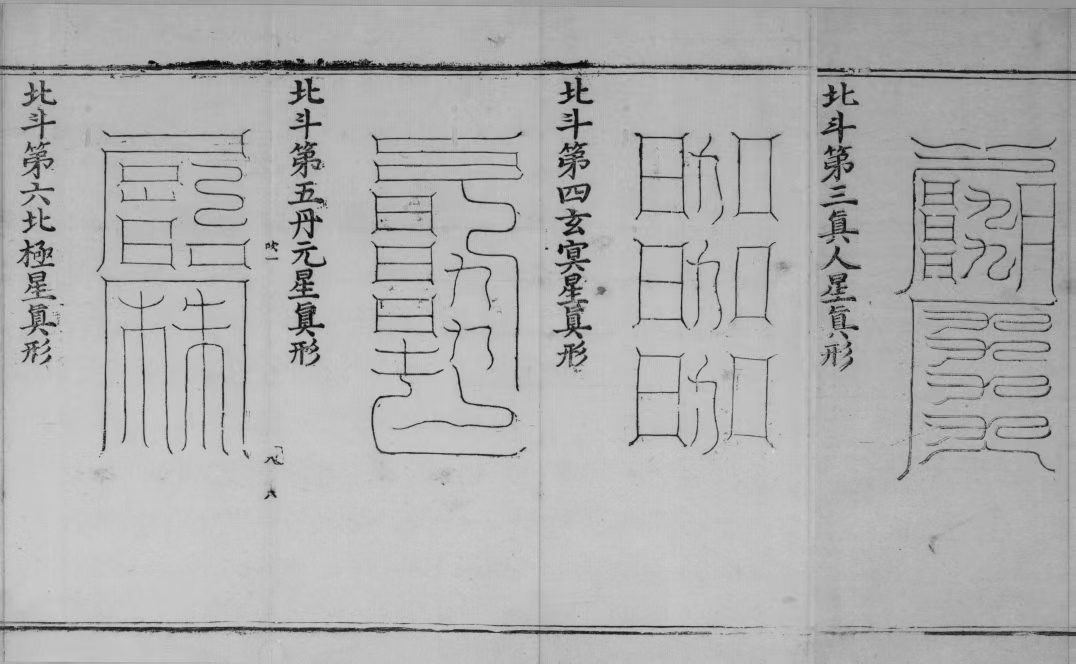 北斗第三眞人星眞形
北斗第四玄冥星眞形
北斗第五丹元星眞形
北斗第六北極星眞形